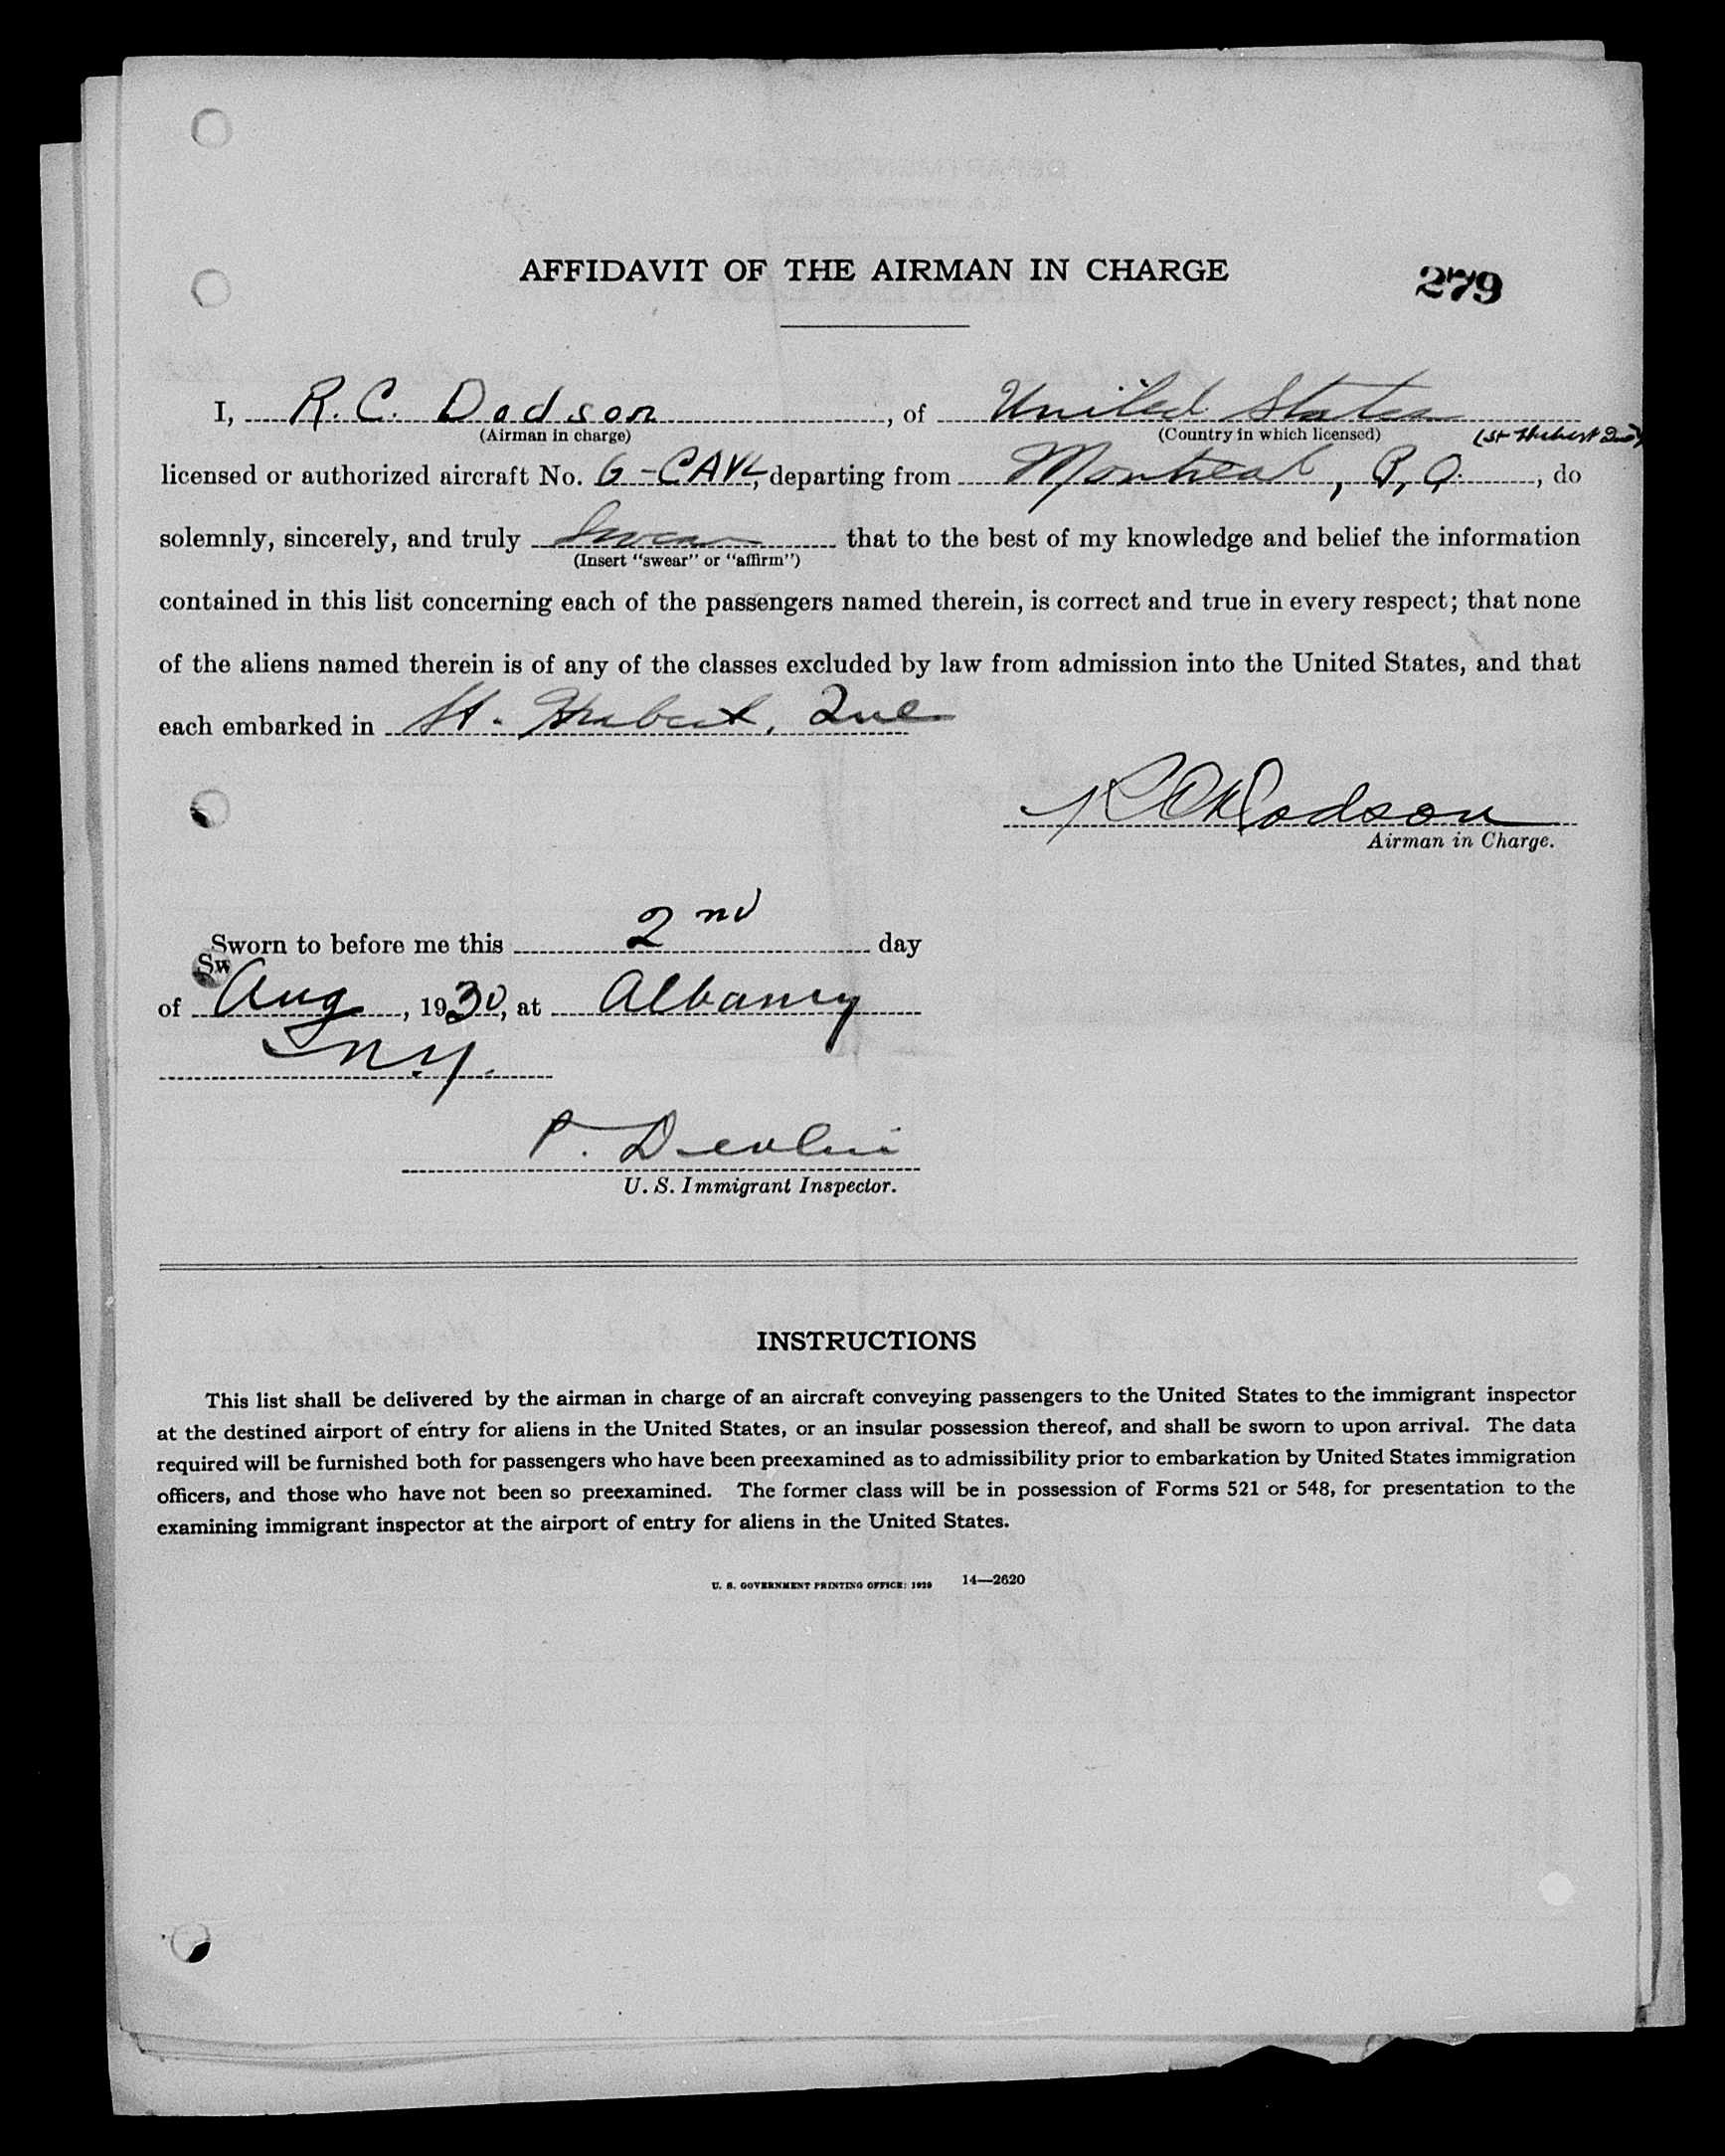 AFFIDAVIT OF THE AIRMAN IN CHARGE
279
I, R. C. Dodson, of United States
(Airman in charge) (Country in which licensed) (St Hubert Que)
licensed or authorized aircraft No. G-CAVL, departing from Montreal, P, Q., do
solemnly, sincerely, and truly Swear that to the best of my knowledge and belief the information
(Insert "swear" or "affirm")
contained in this list concerning each of the passengers named therein, is correct and true in every respect; that none
of the aliens named therein is of any of the classes excluded by law from admission into the United States, and that
each embarked in St. Hubert, Que
R C Dodson
Airman in Charge.
Sworn to before me this 2nd day
Sw
of Aug, 1930, at Albany
N.Y.
P. Devlin
U. S. Immigrant Inspector.
INSTRUCTIONS
This list shall be delivered by the airman in charge of an aircraft conveying passengers to the United States to the immigrant inspector
at the destined airport of entry for aliens in the United States, or an insular possession thereof, and shall be sworn to upon arrival. The data
required will be furnished both for passengers who have been preexamined as to admissibility prior to embarkation by United States immigration
officers, and those who have not been so preexamined. The former class will be in possession of Forms 521 or 548, for presentation to the
examining immigrant inspector at the airport of entry for aliens in the United States.
U. S. GOVERNMENT PRINTING OFFICE: 1929 14—2620